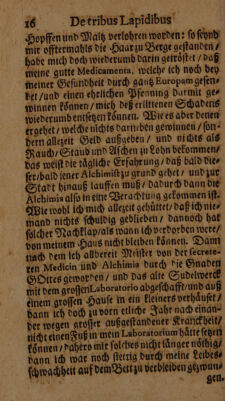 16 De tribus Lapidibus
Hopffen und Maltz verlohren worden: so seynd
mir offtermahls die Haar zu Berge gestanden/
habe mich doch wiederumb darin getröstet/ daß
meine gutte Medicamenta, welche ich noch bey
meiner Gesundheit durch gantz Europam gesen-
det/ und einen ehrlichen Pfenning darmit ge-
winnen können/ mich deß erlittenen Schadens
wiederumb entsetzen können. Wie es aber denen
ergehet/ welche nichts darneben gewinnen/ son-
dern allezeit Geld außgeben/ und nichts als
Rauch/ Staub und Aschen zu Lohn bekommen/
das weist die tägliche Erfahrung/ daß bald die-
ser/bald jener Alchimist zu grund gehet/ und zur
Stadt hinauß lauffen muß/ dadurch dann die
Alchimia also in eine Verachtung gekommen ist.
Wie wohl ich mich allezeit gehüttet/ daß ich nie-
mand nichts schuldig geblieben/ dannoch hat
solcher Nachklap/als wann ich verdorben were/
von meinem Haus nicht bleiben können. Dann
nach dem ich allbereit Meister von der secrete-
ren Medicin und Alchimia durch die Gnaden
GOttes geworden/ und das alte Sudelwerck
mit dem grossen Laboratorio abgeschafft/und auß
einem grossen Hause in ein kleiners verhäust/
dann ich doch zu vorn etliche Jahr nach einan-
der wegen grosser außgestandener Kranckheit/
nicht einen Fuß in mein Laboratorium hätte setzen
können/ dahero mir solches nicht länger nöthig/
dann ich war noch stettig durch meine Leibes-
schwachheit auf dem Bett zu verbleiben gezwun-
gen.